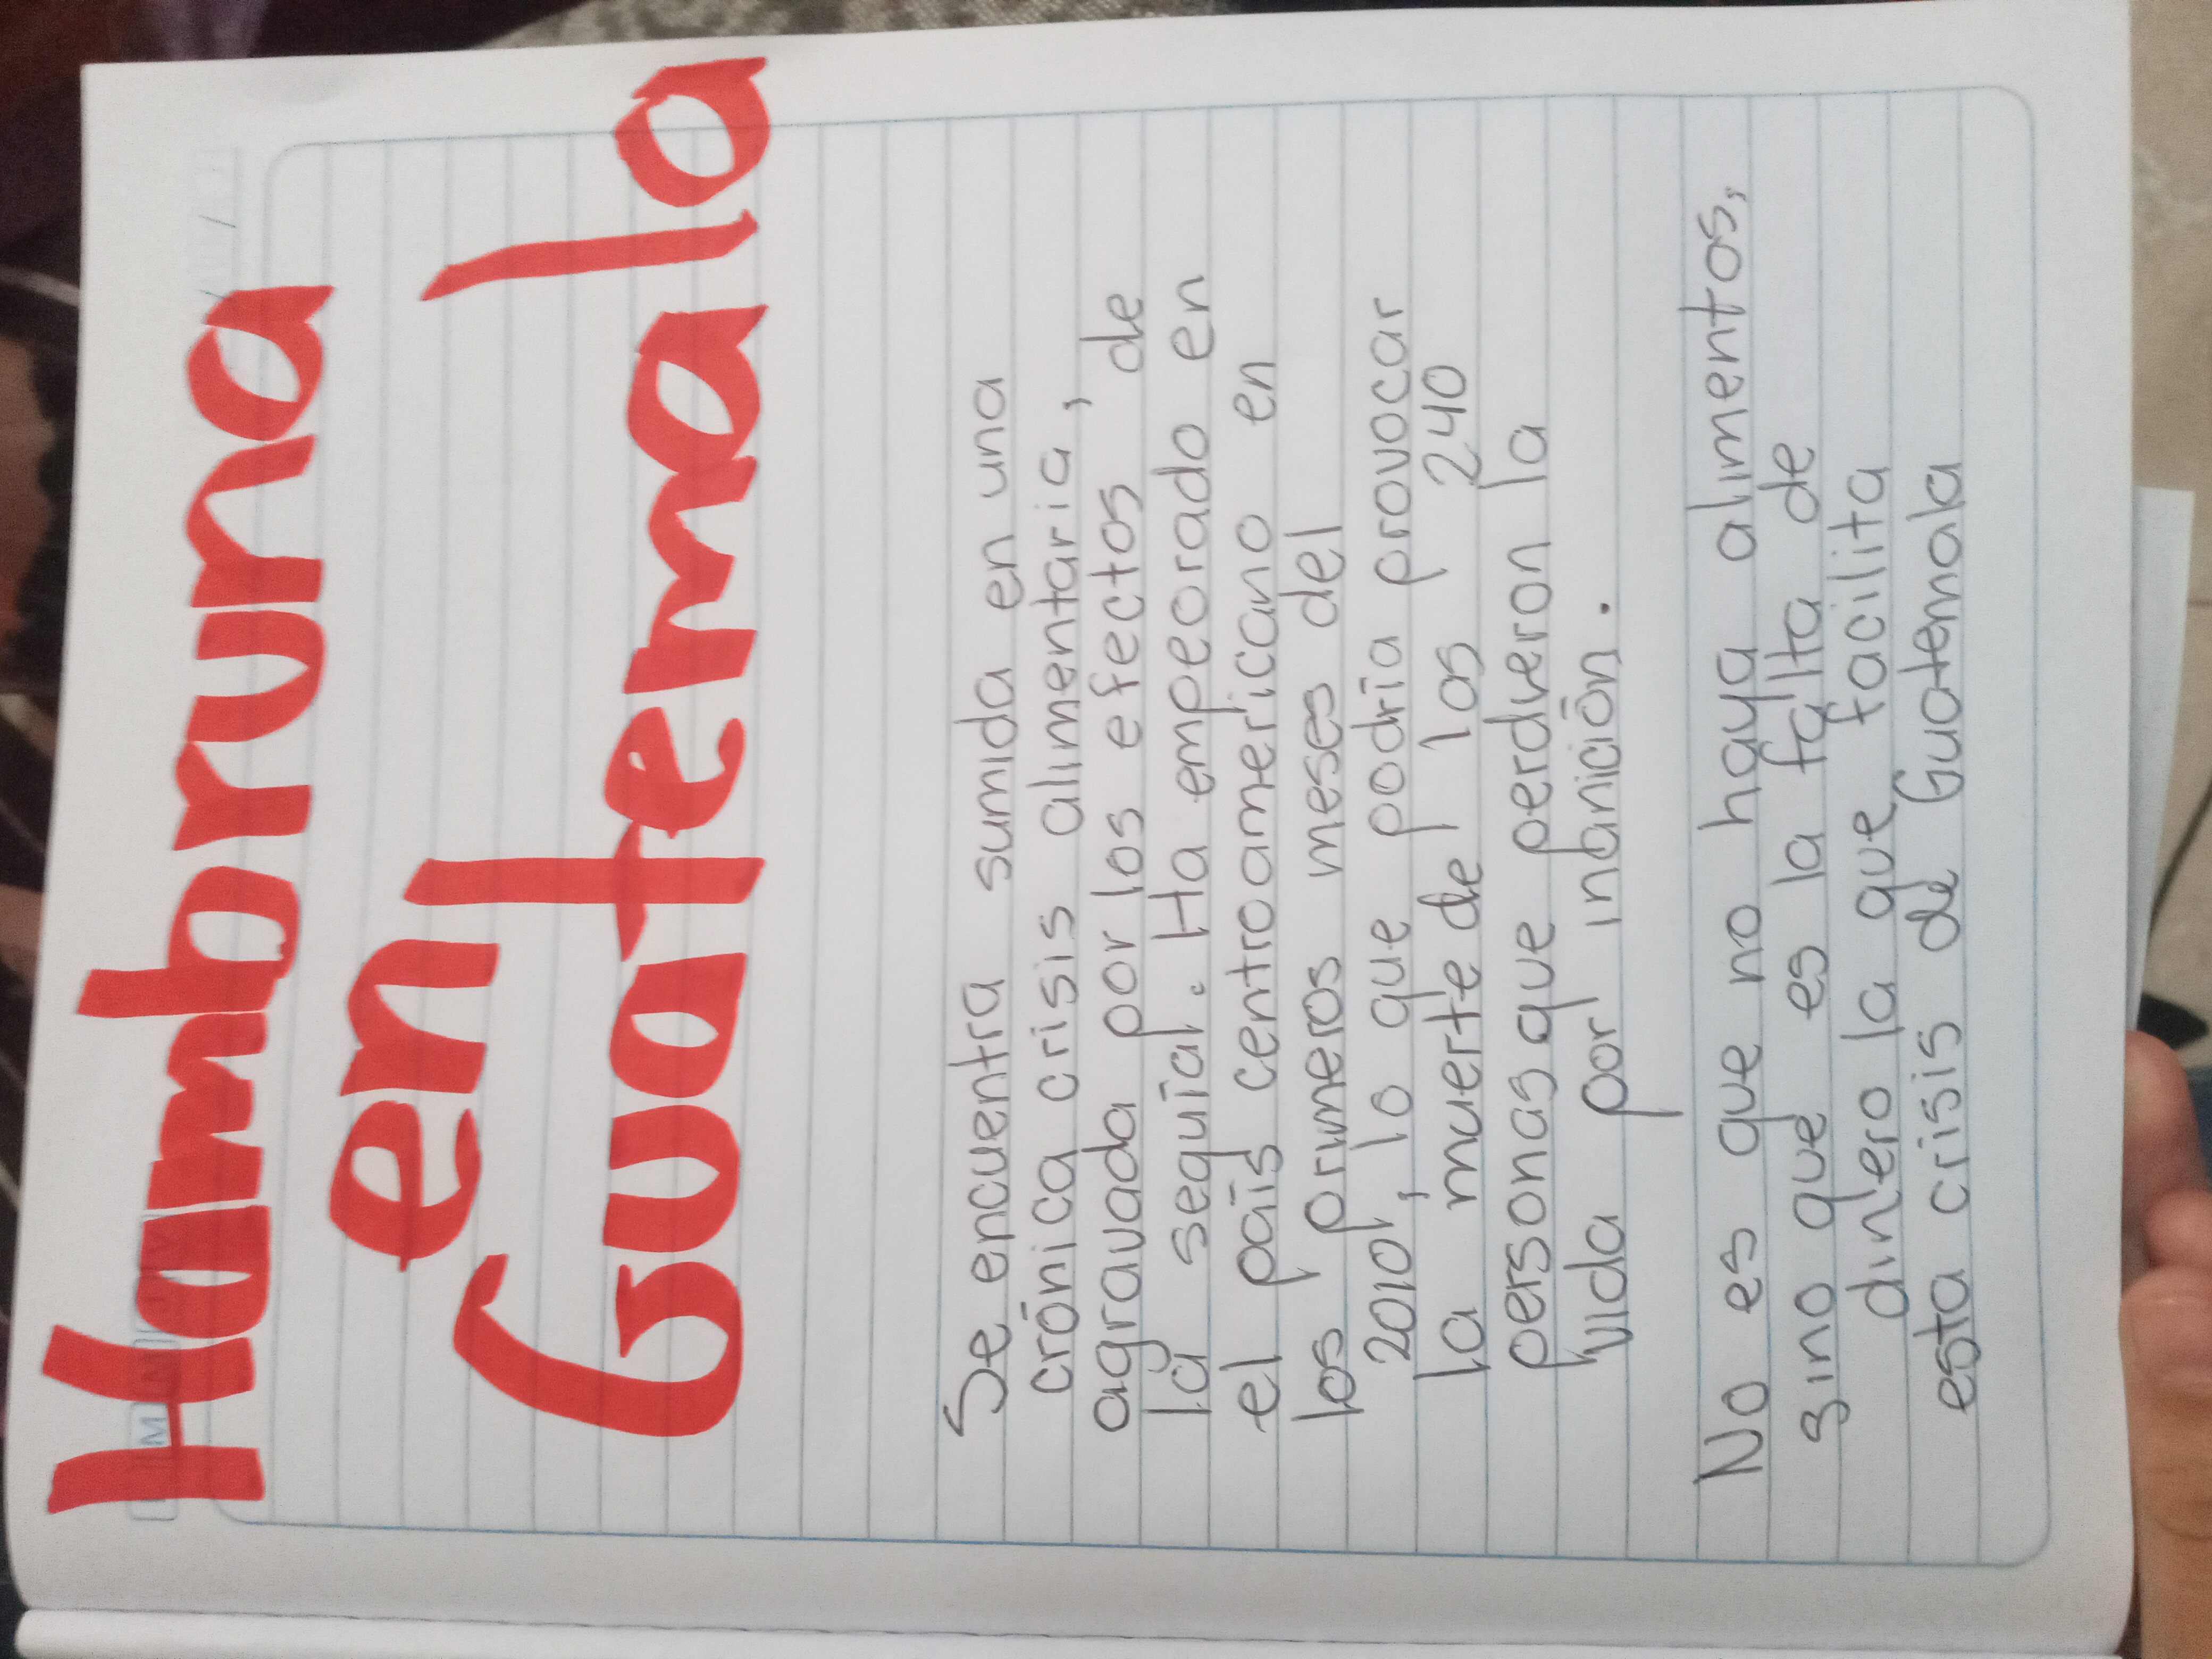 Hambruna
en
Guatemala
Se encuentra sumida en una
crónica crisis alimentaria,
agravada por los efectos de
la sequía. Ha empeorado en
el país centroamericano en
los primeros meses del
2010, lo que podría provocar
la muerte de los 240
personas que perdieron la
vida por inanición.
No es que no haya alimentos,
sino que es la falta de
dinero la que facilita
esta crisis de Guatemala